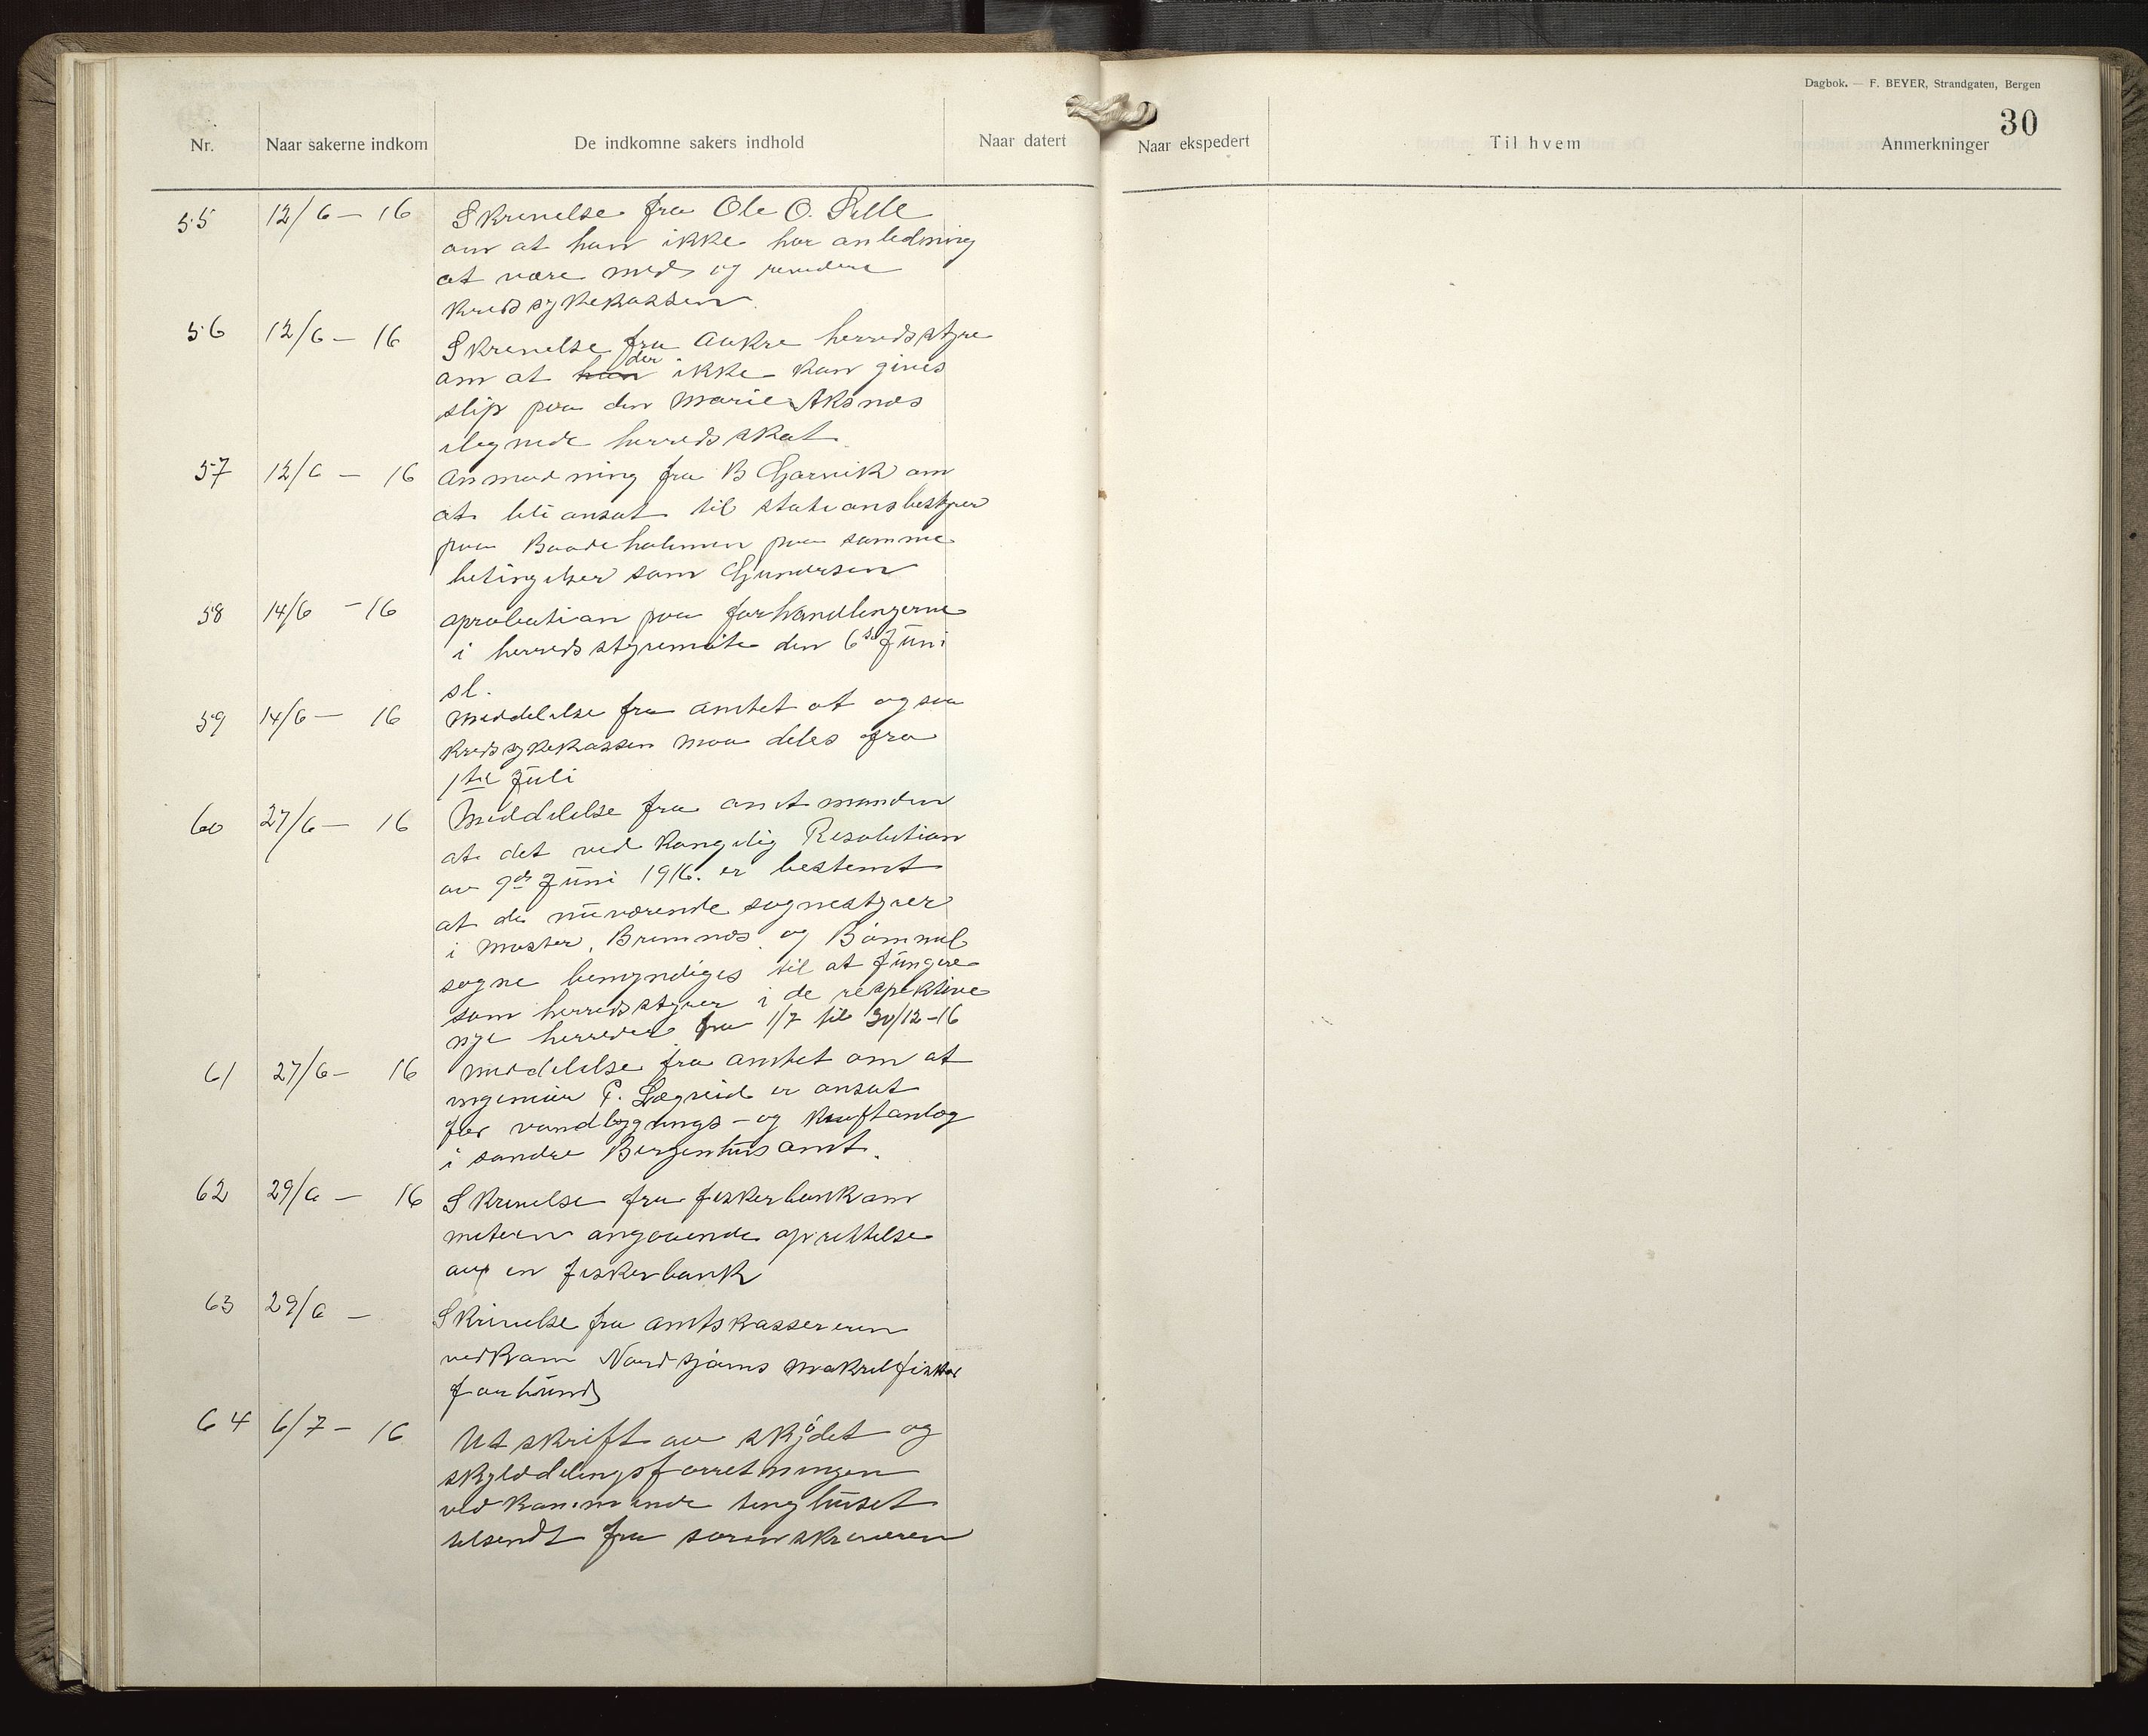 Dagbok. — F. BEYER, Strandgaten, Bergen
30
Nr. Naar sakerne indkom De indkomne sakers indhold Naar datert Naar ekspedert Til hvem Anmerkninger
55 12/6 — 16 Skrivelse fra Ole O. Selle
om at han ikke har anledning
at være med og revidere
kredssykekassen.
56 12/6 — 16 Skrivelse fra Aukre herredsstyre
om at han der ikke kan gives
slip paa den Marie Aksnes
ilegnede herredsskat.
57 12/6 — 16 Anmodning fra B Gjarvik om
at bli ansat til stationsbestyrer
paa Baadeholmen paa samme
betingelser som Gundersen
58 14/6 — 16 aprobation paa forhandlingerne
i herredsstyremøte den 6te Juni
sl.
59 14/6 — 16 Meddelelse fra amtet at ogsaa
kredssykekassen maa deles fra
1ste Juli
60 27/6 — 16 Meddelelse fra amtmanden
at det ved kongelig Resolution
av 9de Juni 1916. er bestemt
at de nuværende sognestyrer
i Moster, Bremnes og Bømmel
sogne bemyndiges til at fungere
som herredsstyrer i de respektive
nye herreder fra 1/7 til 30/12-16
61 27/6 — 16 Meddelelse fra amtet om at
ingeniør P. Lægreid er ansat
for vandbygnings- og kraftanlæg
i søndre Bergenhus amt.
62 29/6 — 16 Skrivelse fra fiskerbankkom
miteen angaaende oprettelse
av en fiskerbank
63 29/6 — Skrivelse fra amtskassereren
vedkom Nordsjøens Makrelfisker
forbund
64 6/7 — 16 Utskrift av skjødet og
skylddelingsforretningen
vedkommende tinghuset
tilsendt fra sorenskriveren